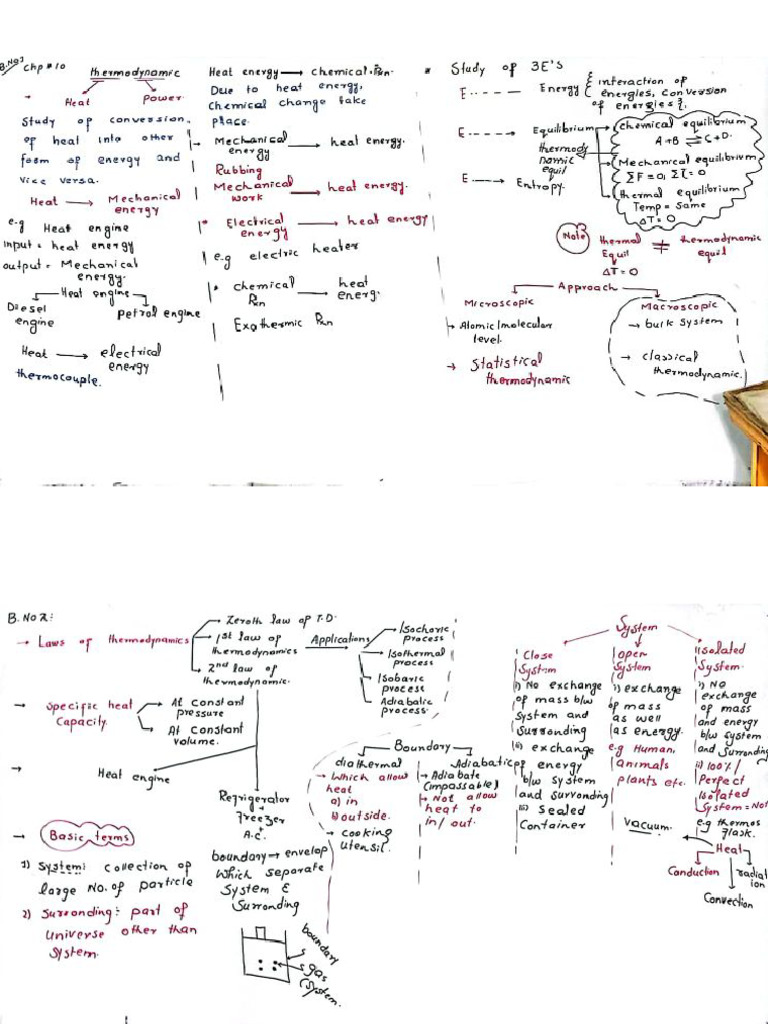 B.No1 Chp # 10
thermodynamic
Heat Power
Study of conversion
of heat into other
form of energy and
vice versa.
Heat → Mechanical
energy
e.g Heat engine
input = heat energy
output = Mechanical
energy.
Heat engine
Diesel
engine
Petrol engine
Heat → electrical
energy
thermocouple.
Heat energy → chemical Rxn.
Due to heat energy,
chemical change take
place.
Mechanical
energy → heat energy.
Rubbing
Mechanical
work → heat energy.
Electrical
energy → heat energy
e.g electric heater
chemical
Rxn → heat
energ.
Exothermic Rxn
* Study of 3E's
E. ---- Energy { interaction of
energies, conversion
of energies }.
E. ---→ Equilibrium
thermody
namic
equil
chemical equilibrium
A+B ⇌ C+D.
Mechanical equilibrium
ΣF = 0, Στ = 0
thermal equilibrium
Temp = Same
ΔT = 0
E. ---→ Entropy.
Note thermal
Equil ≠ thermodynamic
equil
ΔT = 0
Approach
Microscopic
→ Atomic/molecular
level.
→ Statistical
thermodynamic
Macroscopic
→ bulk system
→ classical
thermodynamic.
B. No 2:
→ Laws of thermodynamics
Zeroth law of T.D.
1st law of
thermodynamics
2nd law of
thermodynamic.
Applications
Isochoric
process
Isothermal
process
Isobaric
process
Adiabatic
process.
→ Specific heat
Capacity.
At constant
pressure
At constant
volume.
→ Heat engine
Refrigerator
Freezer
A.C.
→ Basic terms
1) System: collection of
large No. of particle
2) Surronding: part of
universe other than
System.
boundary → envelop
which separate
System &
Surronding
boundary
gas
(System.
Boundary
diathermal
→ Which allow
heat
a) in
outside.
→ cooking
Utensil.
Adiabatic
→ Adiabate
(impassable)
→ Not allow
heat to
in/out.
System
Close
System
i) No exchange
of mass b/w
System and
Surronding
ii) exchange
of energy
b/w system
and surronding
iii) Sealed
Container
open
System
i) exchange
of mass
as well
as energy.
e.g Human,
animals
plants etc.
isolated
System.
i) NO
exchange
of mass
and energy
b/w system
and Surronding
ii) 100%
Perfect
Isolated
System = Not
e.g thermos
flask.
vacuum.
Heat
Conduction
Convection
radiat
ion